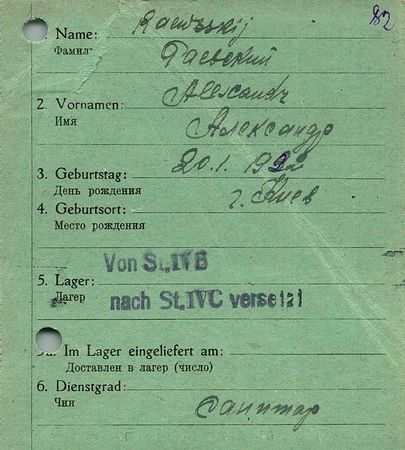 82
1. Name: Raewskij
Фамилия Гаевский
2. Vornamen: Alexandr
Имя Александр
3. Geburtstag: 20.1.1922
День рождения
4. Geburtsort: г. Киев
Место рождения
Von St.IVB
5. Lager:
Лагер nach St.IVC versetzt
5a. Im Lager eingeliefert am:
Доставлен в лагер (число)
6. Dienstgrad:
Чин Санитар